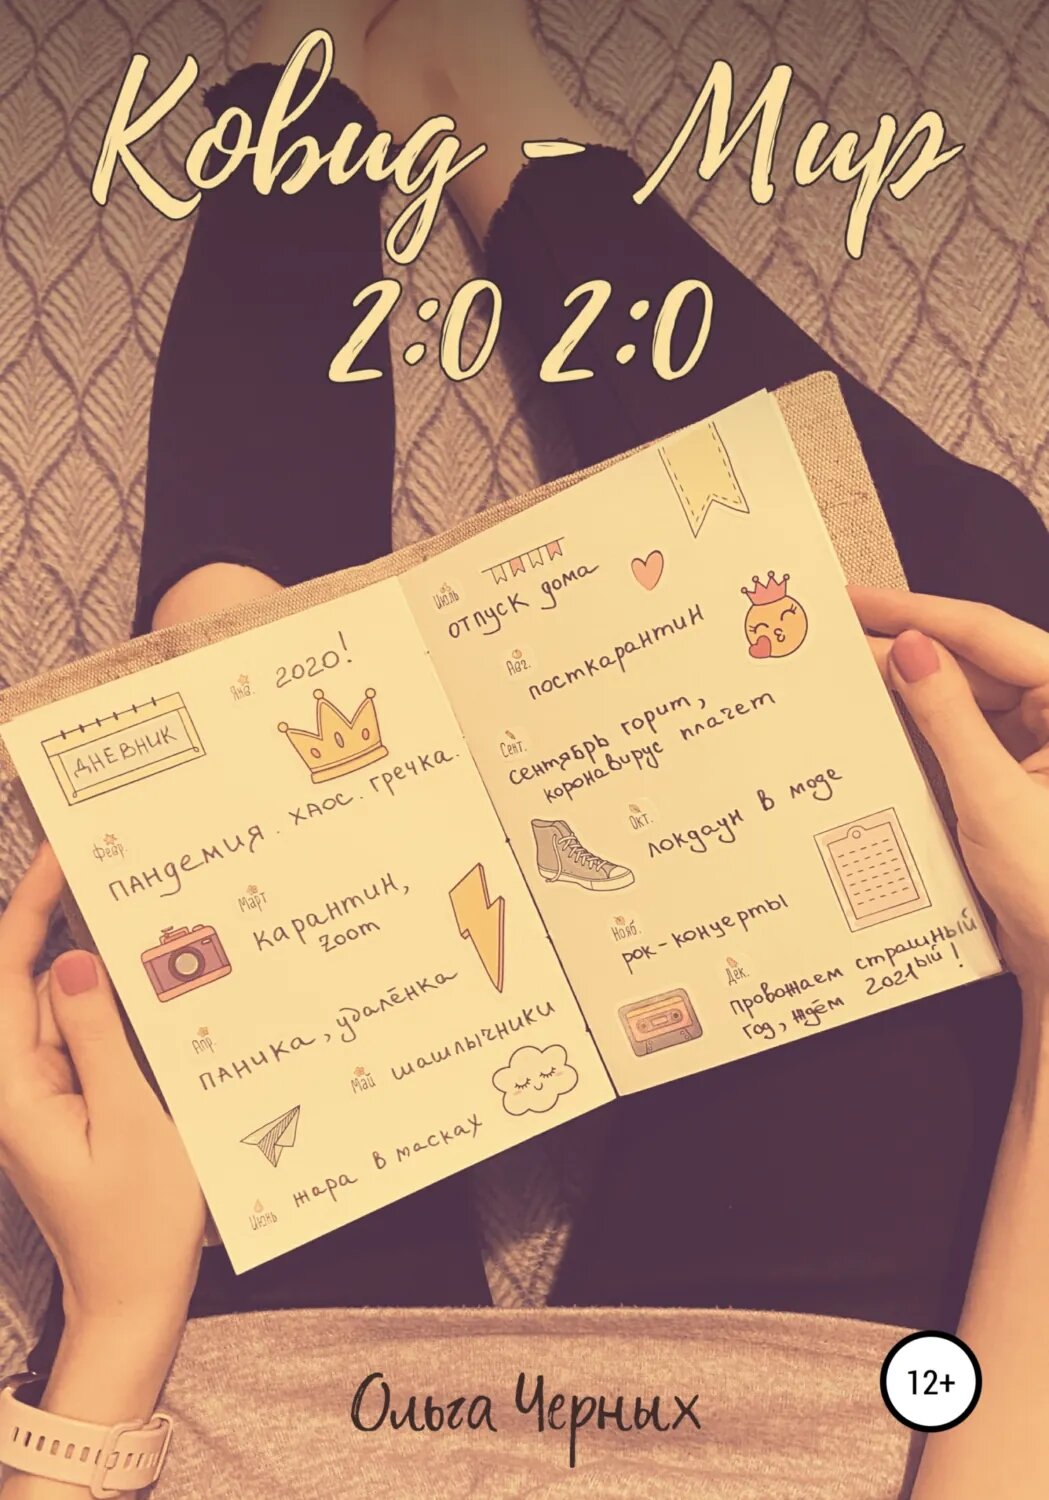 Ковид - Мир
2:0 2:0
ДНЕВНИК
Янв. 2020!
Февр.
пандемия. хаос. гречка.
Март
карантин,
zoom
Апр.
паника, удалёнка
Май шашлычники
Июнь жара в масках
Июль
отпуск дома
Авг.
посткарантин
Сент.
сентябрь горит,
коронавирус плачет
Окт.
локдаун в моде
Нояб.
рок-концерты
Дек.
провожаем страшный
год, ждём 2021ый!
Ольга Черных
12+